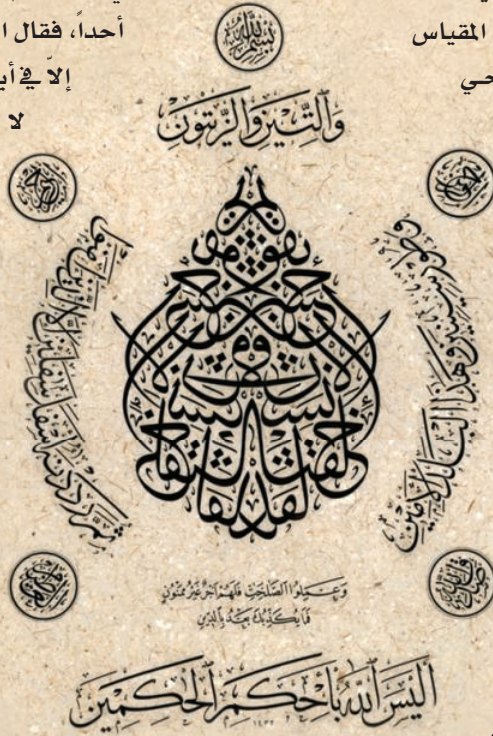 أحداً، فقال ا
المقياس
إلاّ في أي
حي
لا
بسم الله
وَٱلتِّينِ وَٱلزَّيْتُونِ
وَطُورِ سِينِينَ وَهَٰذَا ٱلْبَلَدِ ٱلْأَمِينِ
لقد خلقنا الإنسان في أحسن تقويم
ثُمَّ رَدَدْنَٰهُ أَسْفَلَ سَٰفِلِينَ إِلَّا ٱلَّذِينَ ءَامَنُوا۟
وَعَمِلُوا ٱلصَّٰلِحَٰتِ فَلَهُمْ أَجْرٌ غَيْرُ مَمْنُونٍ
فَمَا يُكَذِّبُكَ بَعْدُ بِٱلدِّينِ
أَلَيْسَ ٱللَّهُ بِأَحْكَمِ ٱلْحَٰكِمِينَ